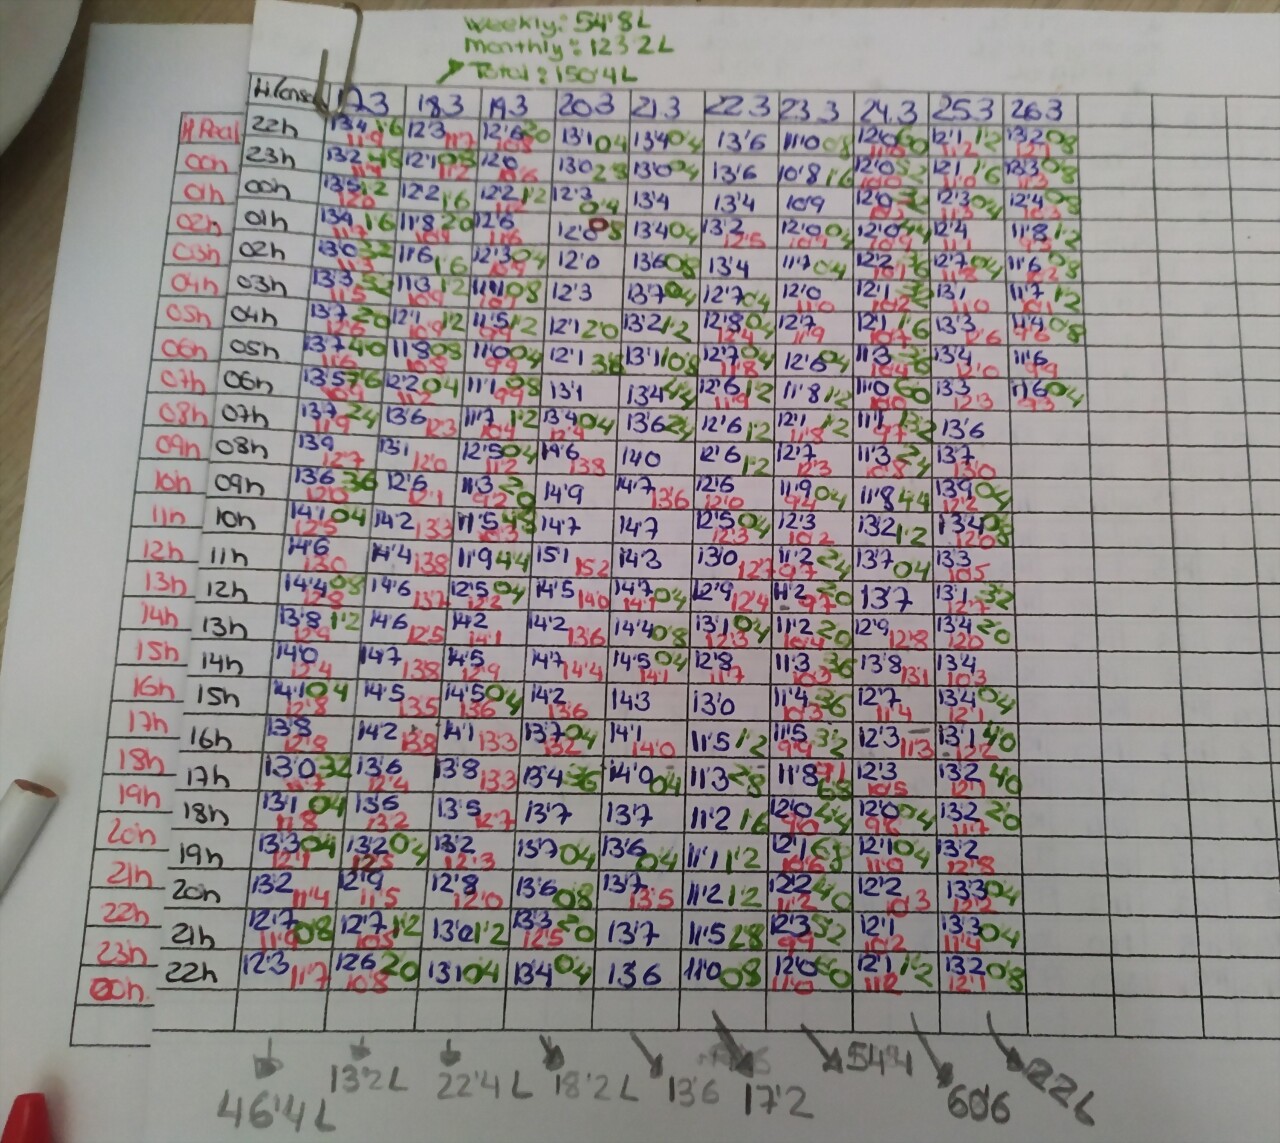 Weekly: 54'8L
Monthly: 123'2L
Total: 150'4L
17.3 18.3 19.3 20.3 21.3 22.3 23.3 24.3 25.3 26.3
H.Real 22h 13'4 1'6 11'9 12'3 11'7 12'6 20 10'8 13'1 04 13'4 04 13'6 11'0 08 12'0 12'1 1'2 11'2 13'2 08 12'1
00h 23h 13'2 12'1 08 11'2 12'0 13'0 28 13'0 04 13'6 10'8 1'6 12'0 12'1 1'6 11'0 13'3 08 11'3
01h 00h 13'5 1'2 12'0 12'2 1'6 12'2 1'2 11'2 12'3 04 13'4 13'4 10'9 12'0 12'3 04 11'3 12'4 08 10'3
02h 01h 13'4 1'6 11'7 11'8 20 10'9 12'6 11'6 13'4 04 13'2 12'5 12'0 04 10'9 12'0 10'9 12'4 11'1 11'8 1'2
03h 02h 13'0 32 11'3 11'6 1'6 12'3 04 10'9 12'0 13'6 08 13'4 11'7 04 12'2 12'7 04 11'8 11'6 08
04h 03h 13'3 11'5 11'3 1'2 10'9 08 12'3 13'7 04 12'7 04 12'0 11'0 12'1 10'2 13'1 11'0 11'7 1'2 10'1
05h 04h 13'7 20 12'6 12'1 1'2 10'9 11'5 1'2 9'9 12'1 20 13'2 1'2 12'8 04 12'4 12'7 11'9 12'1 1'6 10'7 13'3 12'6 08
06h 05h 13'7 40 11'6 11'8 08 10'8 11'0 04 9'9 12'1 36 13'1 08 12'7 04 11'8 12'6 04 11'3 13'4 12'0 11'6 9'9
07h 06h 13'5 76 10'9 12'2 04 11'2 11'1 13'1 13'4 12'6 1'2 11'9 11'8 1'2 11'0 60 10'0 13'3 12'3 11'6 04 9'3
08h 07h 13'7 24 11'9 13'6 12'3 11'7 1'2 10'4 13'4 04 12'4 13'6 24 12'6 1'2 12'1 1'2 11'8 11'1 132 9'7 13'6
09h 08h 13'9 12'7 13'1 12'0 12'5 04 11'2 14'6 13'8 14'0 12'6 1'2 12'7 12'3 11'3 24 10'8 13'7 13'0
10h 09h 13'6 36 12'0 12'6 12'1 11'3 9'2 14'9 14'7 13'6 12'6 12'0 11'9 04 9'4 11'8 44 13'9 04 12'2
11h 10h 14'1 04 12'5 14'2 13'3 11'5 48 10'3 14'7 14'7 12'5 04 12'3 12'3 10'2 13'2 1'2 13'4 08 12'0
12h 11h 14'6 13'0 14'4 13'8 11'9 44 15'1 15'2 14'3 13'0 12'7 11'2 24 9'7 13'7 04 13'3 10'5
13h 12h 14'4 08 12'8 14'6 13'7 12'5 04 12'2 14'5 14'0 14'7 04 14'1 12'9 12'4 11'2 20 9'7 13'7 13'1 32 12'7
14h 13h 13'8 1'2 12'9 14'6 12'5 14'2 14'1 14'2 13'6 14'4 08 13'1 04 12'3 11'2 20 10'4 12'9 12'8 13'4 20 12'0
15h 14h 14'0 12'4 14'7 13'8 14'5 12'9 14'7 14'4 14'5 04 14'1 12'8 11'7 11'3 36 10'3 13'8 13'1 13'4 10'3
16h 15h 14'1 04 12'8 14'5 13'5 14'5 04 13'6 14'2 13'6 14'3 13'0 11'4 36 10'3 12'7 11'4 13'4 04 12'1
17h 16h 13'8 12'8 14'2 13'8 14'1 13'3 13'7 04 13'2 14'1 14'0 11'5 1'2 11'5 32 9'9 12'3 11'3 13'1 40 12'2
18h 17h 13'0 32 13'6 12'4 13'8 13'3 13'4 36 14'0 04 11'3 28 11'8 68 12'3 10'5 13'2 40 12'1
19h 18h 13'1 04 11'8 13'6 13'2 13'5 12'7 13'7 13'7 11'2 1'6 12'0 12'0 04 13'2 20 11'7
20h 19h 13'3 04 12'1 13'2 04 12'5 13'2 12'3 13'7 04 13'6 04 11'1 1'2 12'1 68 10'6 12'1 04 11'0 13'2 12'8
21h 20h 13'2 11'4 12'9 11'5 12'8 12'0 13'6 08 13'7 13'5 11'2 1'2 12'2 40 11'2 12'2 10'3 13'3 04
22h 21h 12'7 08 11'9 12'7 1'2 10'5 13'0 1'2 13'3 20 12'5 13'7 11'5 28 12'3 52 9'9 12'1 10'2 13'3 04 11'4
23h 22h 12'3 11'7 12'6 20 10'8 13'1 04 13'4 04 13'6 11'0 08 12'0 60 11'0 12'1 1'2 11'2 13'2 08 12'1
00h
46'4L 13'2L 22'4L 18'2L 13'6 17'2 54'4 60'6 22L